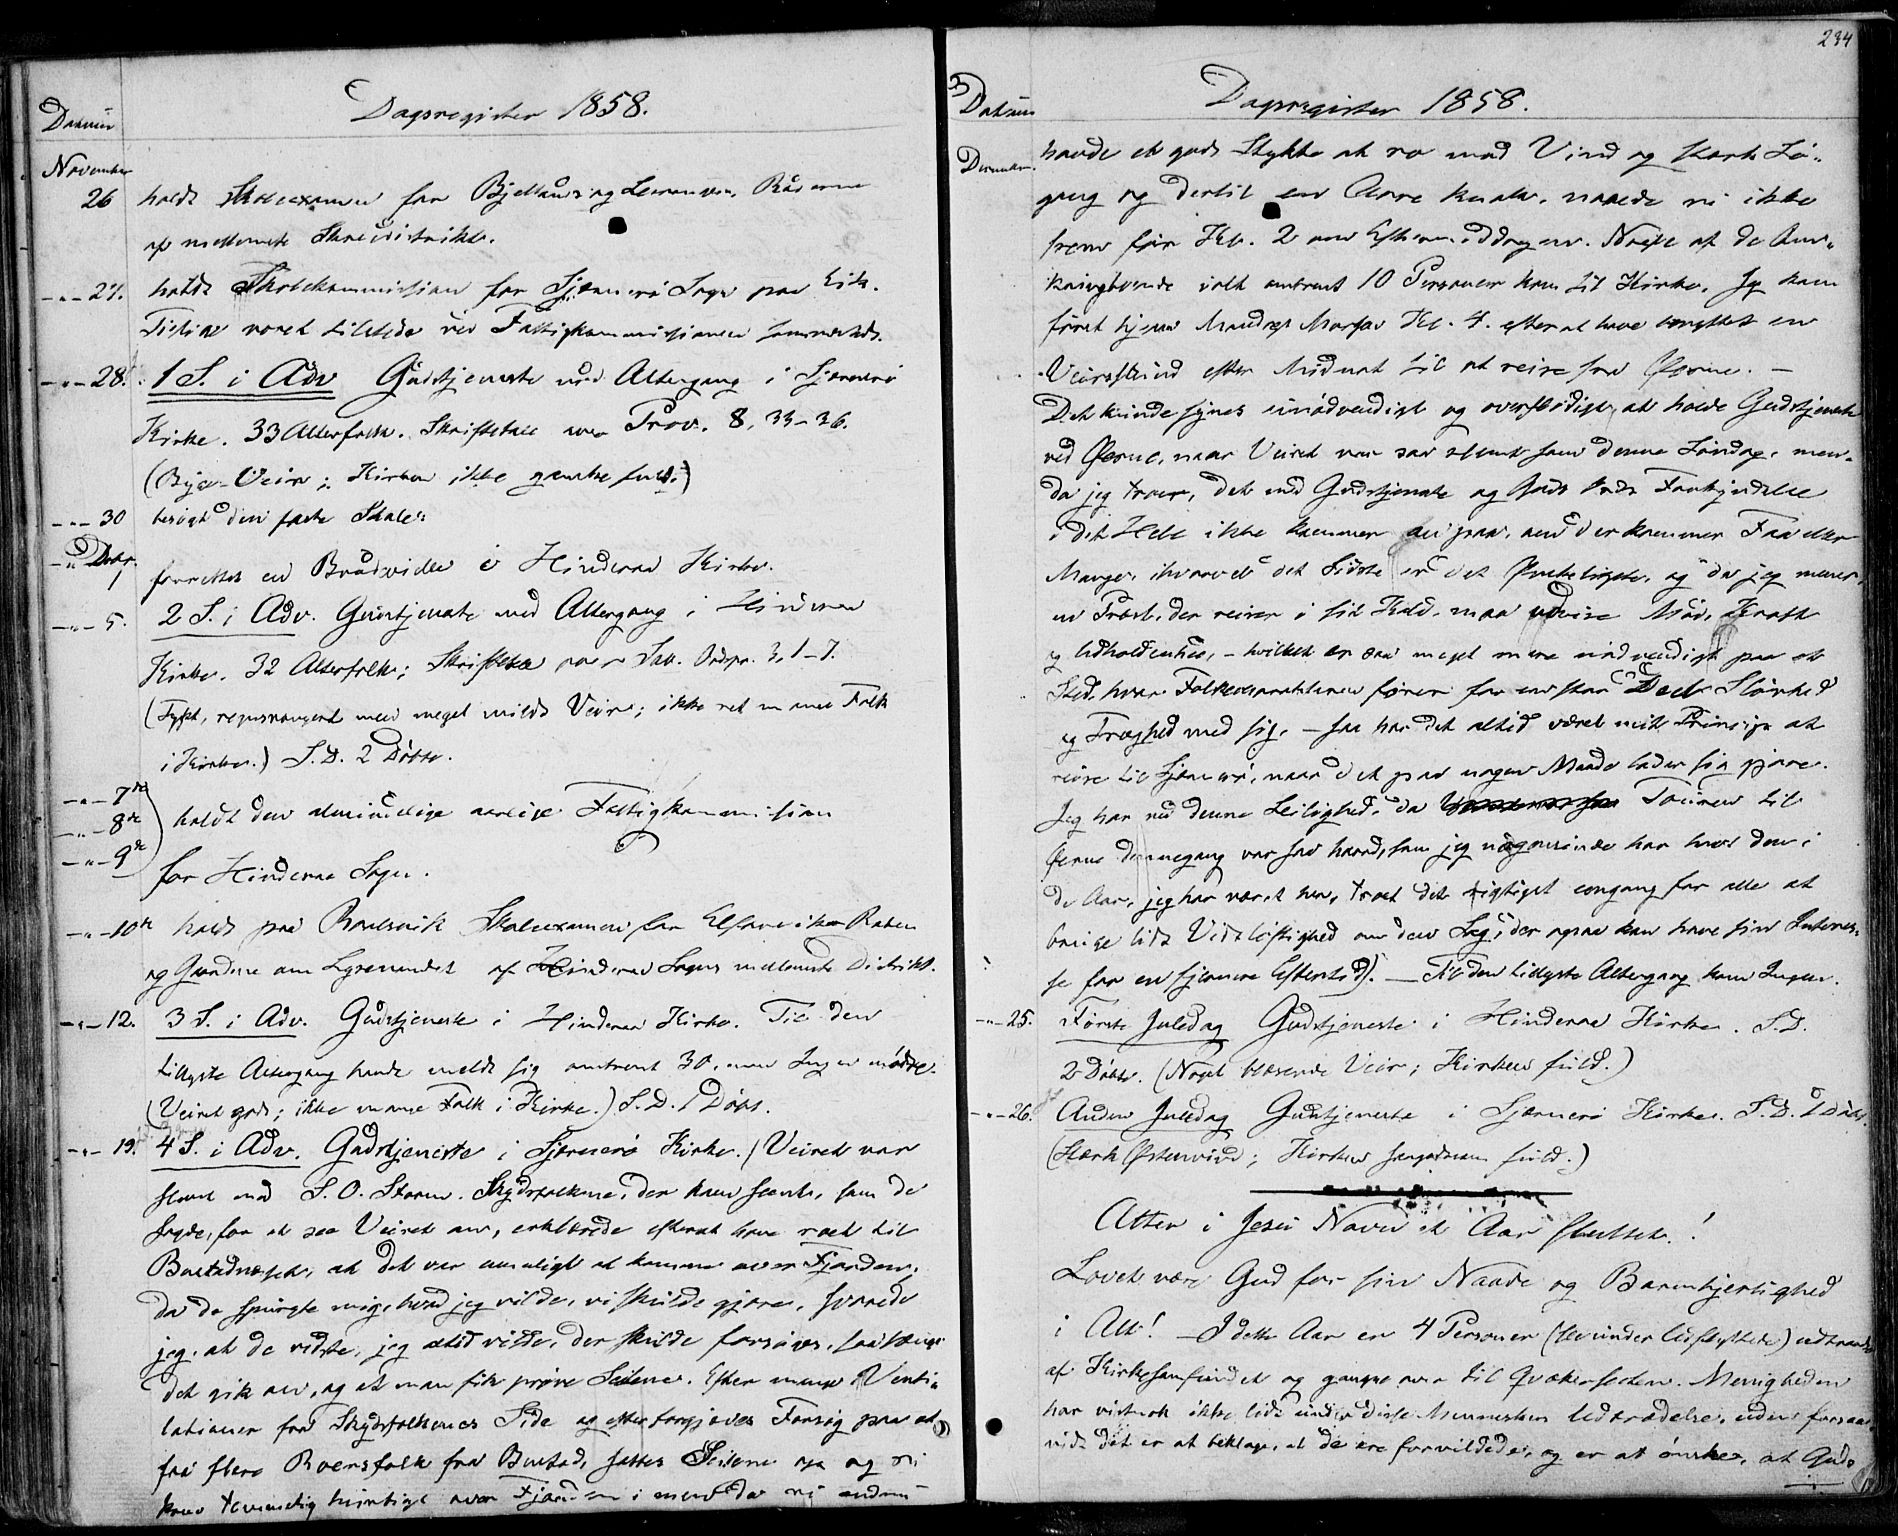 Datum
Dagsregister 1858.
November
26 holdt Skoleexamen for Bjelland og Leeranger Roderne
af mellemste Skoledistrikt.
-"-27. holdt Skolekommission for Sjærnerø Sogn paa Eik.
Tillige været tilstede ved Fattigkommissionen sammesteds.
-"-28. 1 S. i Adv Gudstjeneste med Altergang i Sjærnerø
Kirke. 33 Alterfolk. Skriftetale over Prov. 8, 33-36.
(Bye-Veir; Kirken ikke ganske fuld.)
-"-30 besøgt den faste Skole.
-"- Decbr. 1 forrettet en Brudevielse i Hinderaa Kirke.
-"-5. 2 S. i Adv. Gudstjeneste med Altergang i Hinderaa
Kirke. 32 Alterfolk; Skriftetale over Sal. Ordspr. 3, 1-7.
(Tykt, regnskvangent med meget mildt Veir; ikke ret mange Folk
i Kirken.) S.D. 2 Døbte.
-"-7de
-"-8de holdt den almindelige aarlige Fattigkommission
-"-9de
for Hinderaa Sogn.
-"-10de holdt paa Baadsvik Skoleexamen for Elfarviken Roden
og Gaardene om af Hinderaa Sogns mellemste Distrikt.
-"-12. 3 S. i Adv. Gudstjeneste i Hinderaa Kirke. Til den
tillyste Altergang havde meldt sig omtrent 30, men Ingen mødte.
(Veiret godt; ikke mange Folk i Kirke.) S.D. 1 Døbt.
-"-19. 4 S. i Adv. Gudstjeneste i Sjærnerø Kirke. (Veiret var
slemt med S.O. Storm. Skydsfolkene, der kom seent, som de
sagde, for at see Veiret an, erklærede efterat have roet til
Bustadnæset, at det var umuligt at komme over Fjorden,
da de spurgte mig, hvad jeg vilde, vi skulde gjøre, svarede
jeg, at de vidste, jeg altid vilde, der skulde forsøges, saalænge
det gik an, og at man fik prøve Seilene. Efter mange Venti-
lationer fra Skydsfolkenes Side og efter forgjæves Forsøg paa at
faa flere Roersfolk fra Bustad, sattes Seilene op og vi
kom temmelig hurtigt over Fjorden; men da vi endnu
234
Datum
Dagsregister 1858.
December.
havde et godt Stykke at roe mod Vind og stærk Sø-
gang og dertil en Aare knak, naaede vi ikke
frem før Kl. 2 om Eftermiddagen. Nogle af de Om-
kringboende ialt omtrent 10 Personer kom til Kirke. Jeg kom
først hjem Mandags Morgen Kl. 4. efter at have benyttet en
Veirstund efter Midnat til at reise fra Øerne. —
Det kunde synes unødvendigt og overflødigt, at holde Gudstjeneste
ved Øerne, naar Veiret var saa slemt som denne Søndag, men
da jeg troer, det med Gudstjeneste og Guds Ords Forkyndelse
i det Hele ikke kommer an paa, om der kommer Faa eller
Mange, ihvorvel det Sidste er det Ønskeligste, og da jeg mener,
en Præst, der reiser i sit Kald, maa udvise Mod, Kraft
og Udholdenhed, - hvilket er saa meget mere nødvendigt paa et
Sted, hvor Folkekarakteren fører for en stor Deel Sløvhed
og Træghed med sig, - saa har det altid været mit Princip at
reise til Sjærnerø, naar det paa nogen Maade lader sig gjøre.
Jeg har ved denne Leilighed, da Touren til
Øerne dennegang var saa haard, som jeg nogensinde har havt den i
de Aar, jeg har været her, troet det rigtigst engang for alle at
bruge lidt Vidtløftighed om den Sag, der ogsaa kan have sin Interes-
se for en fjernere Eftertid). — Til den tillyste Altergang kom Ingen.
-"-25. Første Juledag Gudstjeneste i Hinderaa Kirke. S.D.
2 Døbte. (Noget blæsende Veir; Kirken fuld.)
-"-26. Anden Juledag Gudstjeneste i Sjærnerø Kirke. S.D. 1 Døbt.
(Stærk Østenvind; Kirken fuld.)
Atter i Jesu Navn et Aar sluttet!
Lovet være Gud for sin Naade og Barmhjertighed
i Alt! — I dette Aar er 4 Personer (herunder Udflyttede) udtraadte
af Kirkesamfundet og gangne over til Qvækersecten. Menigheden
har vistnok ikke lidt under disse Menneskers Udtrædelse, uden forsaa-
vidt det er at beklage, at de ere forvildede, og er at ønske, at Guds